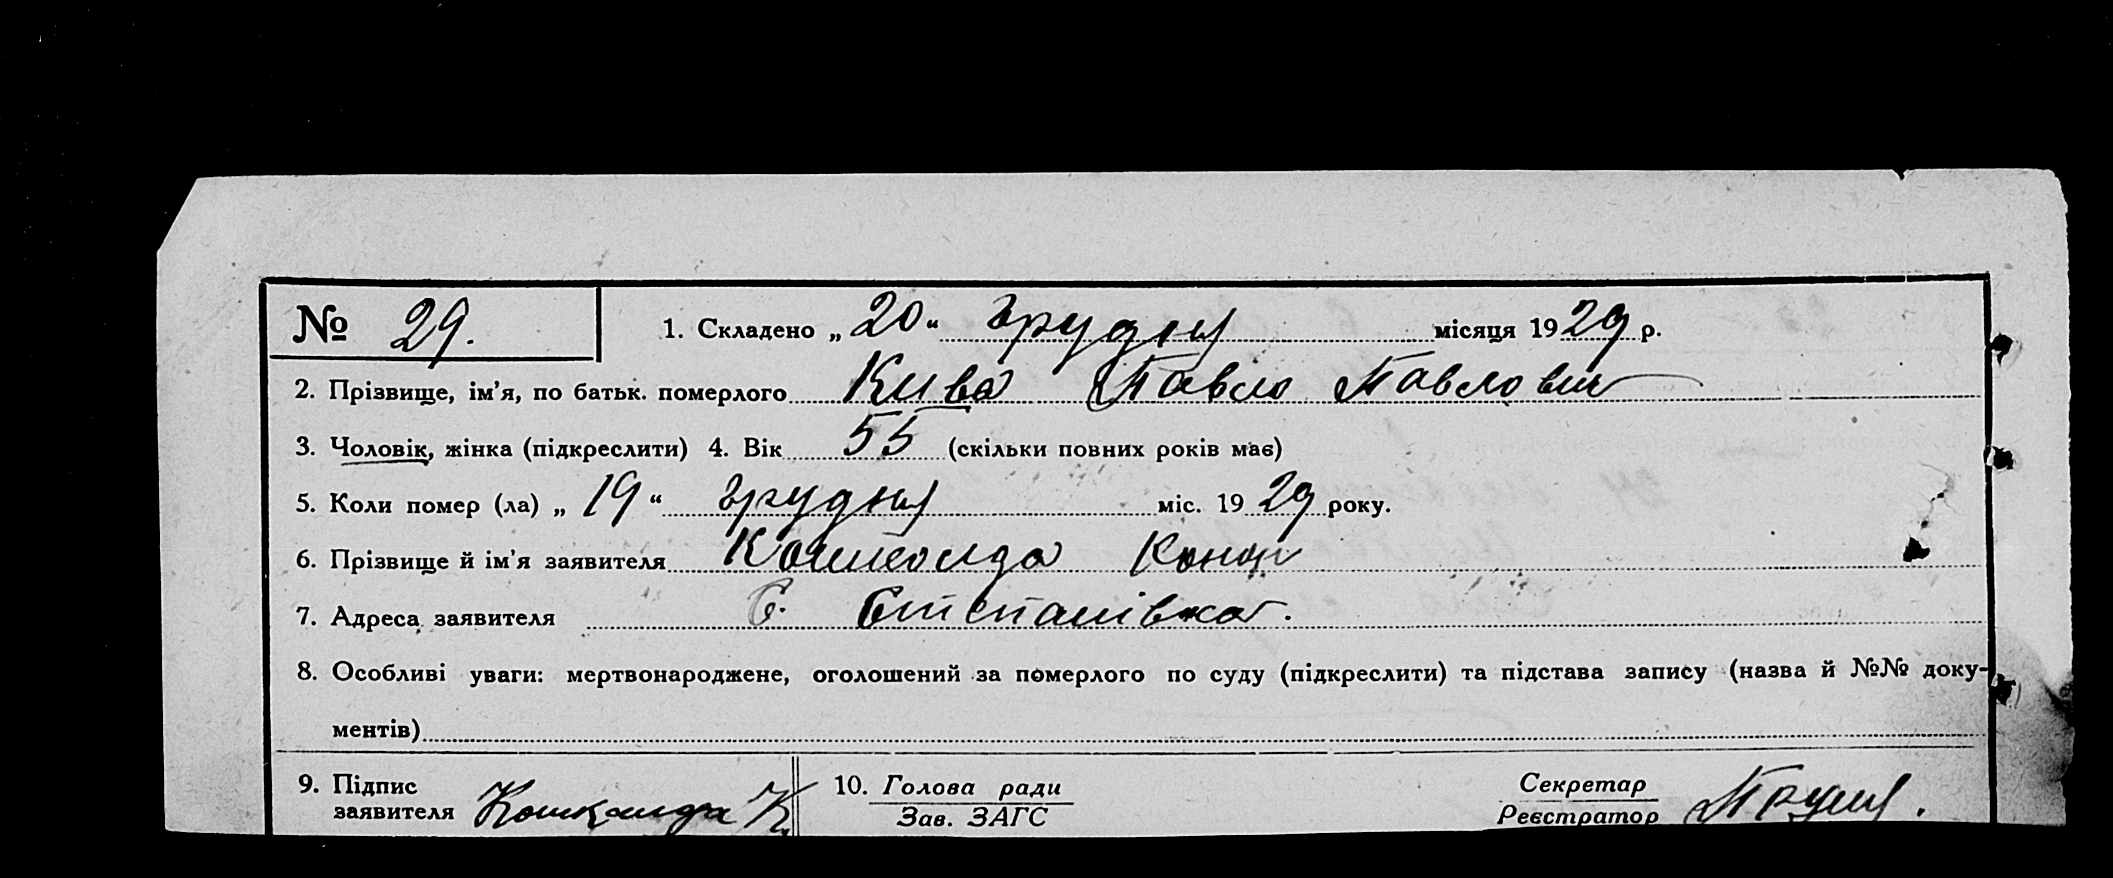 № 29. 1. Складено „20“ грудня місяця 1929 р.
2. Прізвище, ім’я, по батьк. померлого Кива Павло Павлович
3. Чоловік, жінка (підкреслити) 4. Вік 55 (скільки повних років має)
5. Коли помер (ла) „19“ грудня міс. 1929 року.
6. Прізвище й ім’я заявителя
7. Адреса заявителя С. Степанівка.
8. Особливі уваги: мертвонароджене, оголошений за померлого по суду (підкреслити) та підстава запису (назва й №№ доку-
ментів)
9. Підпис 10. Голова ради Секретар
заявителя Зав. ЗАГС Реєстратор